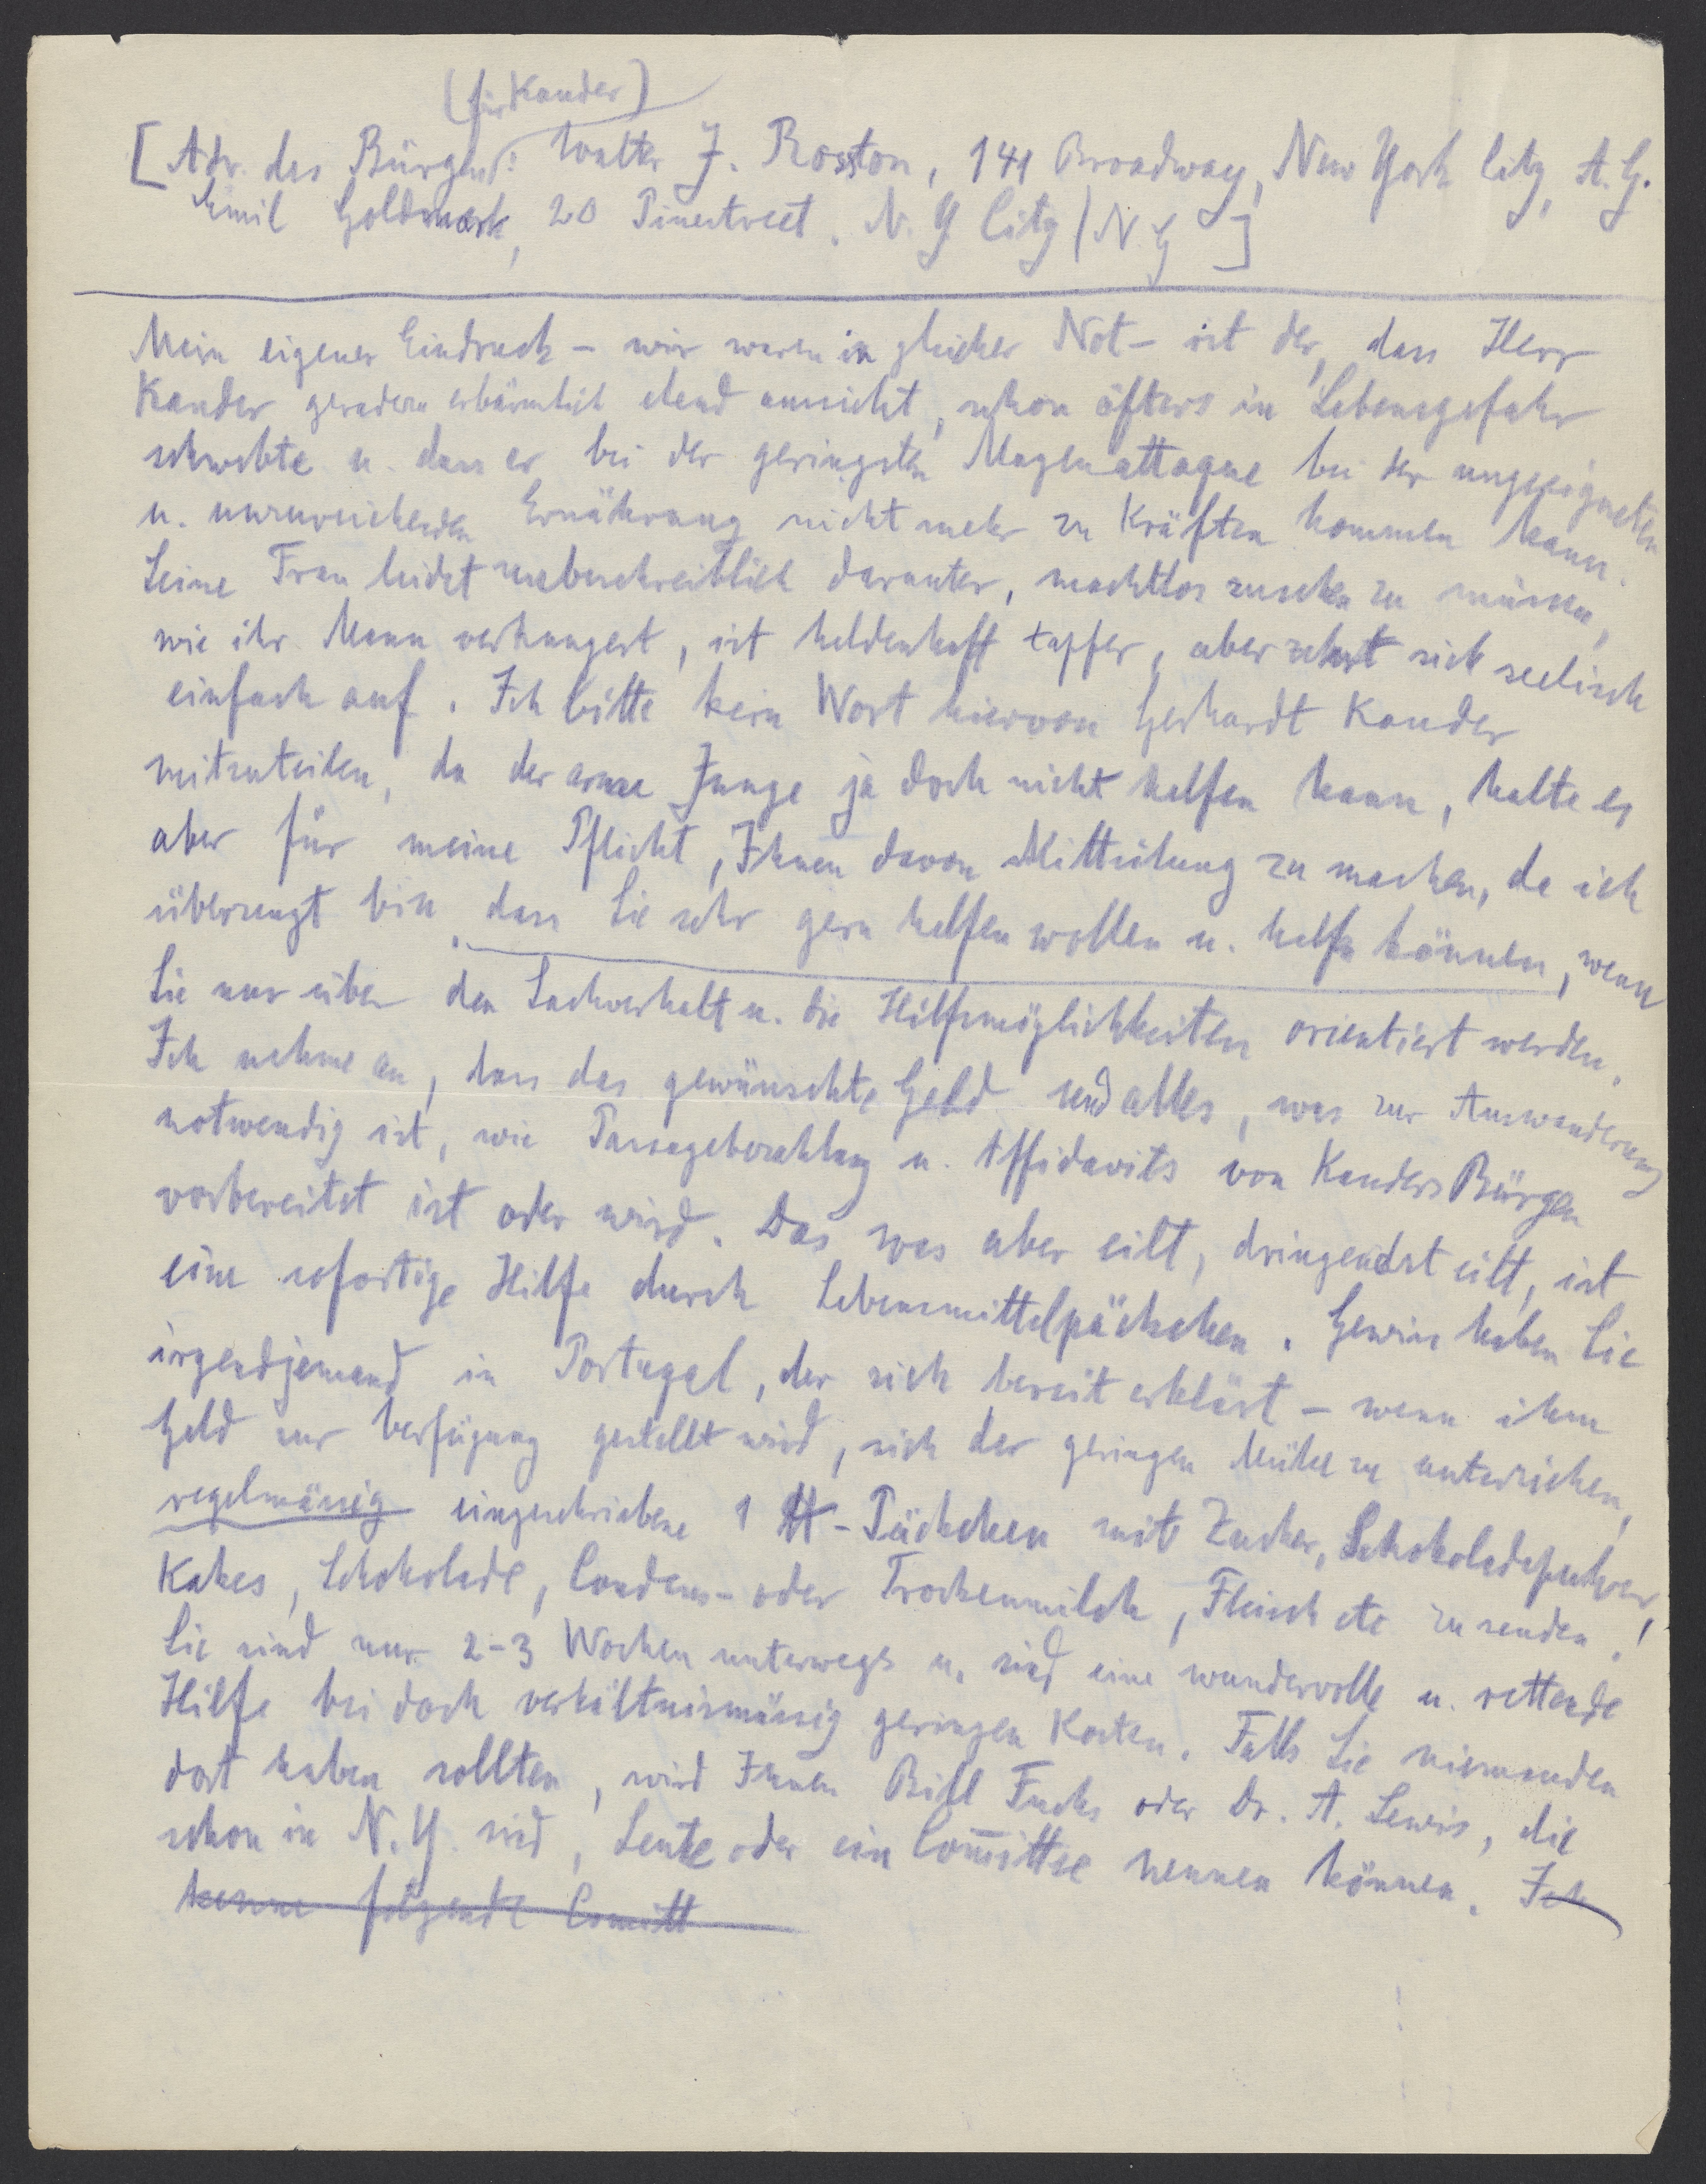 (für Kander)
[Adr. des Bürgen: Walter J. Rosston, 141 Broadway, New York City, A.G.
Emil Goldmark, 20 Pinestreet. N.Y City (N.Y ]
Mein eigener Eindruck – wir waren in gleicher Not – ist der, dass Herr
Kander geradezu erbärmlich elend aussieht, schon öfters in Lebensgefahr
schwebte u. dass er bei der geringsten Magenattaque bei der ungeeigneten
u. unzureichenden Ernährung nicht mehr zu Kräften kommen kann.
Seine Frau leidet unbeschreiblich darunter, machtlos zusehen zu müssen,
wie ihr Mann verhungert, ist heldenhaft tapfer, aber zehrt sich seelisch
einfach auf. Ich bitte kein Wort hiervon Gerhardt Kander
mitzuteilen, da der arme Junge ja doch nicht helfen kann, halte es
aber für meine Pflicht, Ihnen davon Mitteilung zu machen, da ich
überzeugt bin, dass Sie sehr gern helfen wollen u. helfen können, wenn
Sie nur über den Sachverhalt u. die Hilfsmöglichkeiten orientiert werden.
Ich nehme an, dass das gewünschte Geld und alles, was zur Auswanderung
notwendig ist, wie Passagebezahlung u. Affidavits von Kanders Bürgen
vorbereitet ist oder wird. Das was aber eilt, dringendst eilt, ist
eine sofortige Hilfe durch Lebensmittelpäckchen. Gewiss haben Sie
irgendjemand in Portugal, der sich bereit erklärt – wenn ihm
Geld zur Verfügung gestellt wird, sich der geringen Mühe zu unterziehen,
regelmässig eingeschriebene 1 ℔-Päckchen mit Zucker, Schokoladepulver,
Kakes, Schokolade, Condens- oder Trockenmilch, Fleisch etc zu senden!
Sie sind nur 2-3 Wochen unterwegs u. sind eine wundervolle u. rettende
Hilfe bei doch verhältnismässig geringen Kosten. Falls Sie niemanden
dort haben sollten, wird Ihnen Bill Fuchs oder Dr. A. Lewis, die
schon in N.Y. sind, Leute oder ein Com̅ittee nennen können. Ich
kenne folgende Comitt